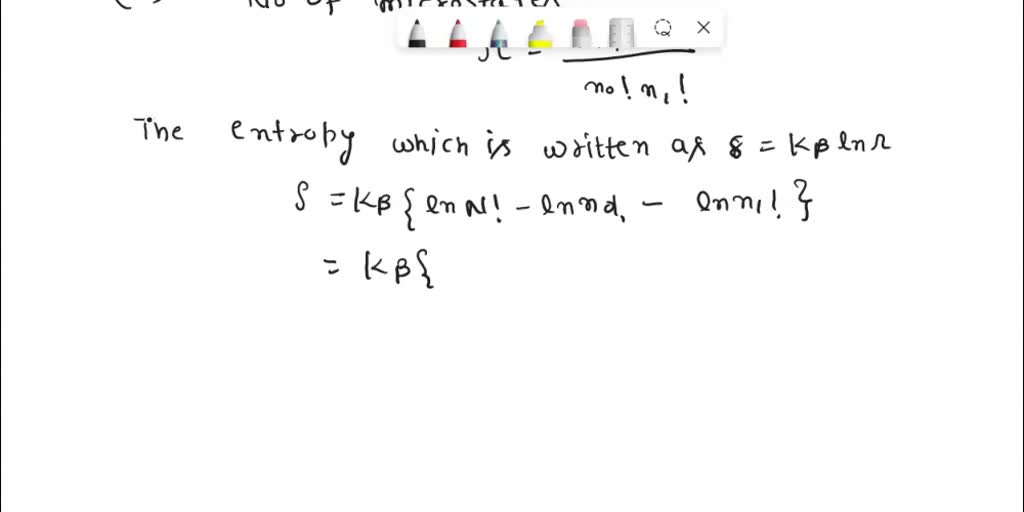 No of microstates
Ω =
n₀! n₁!
The entropy which is written as S = Kβ ln Ω
S = Kβ { ln N! - ln n₀! - ln n₁! }
= Kβ {